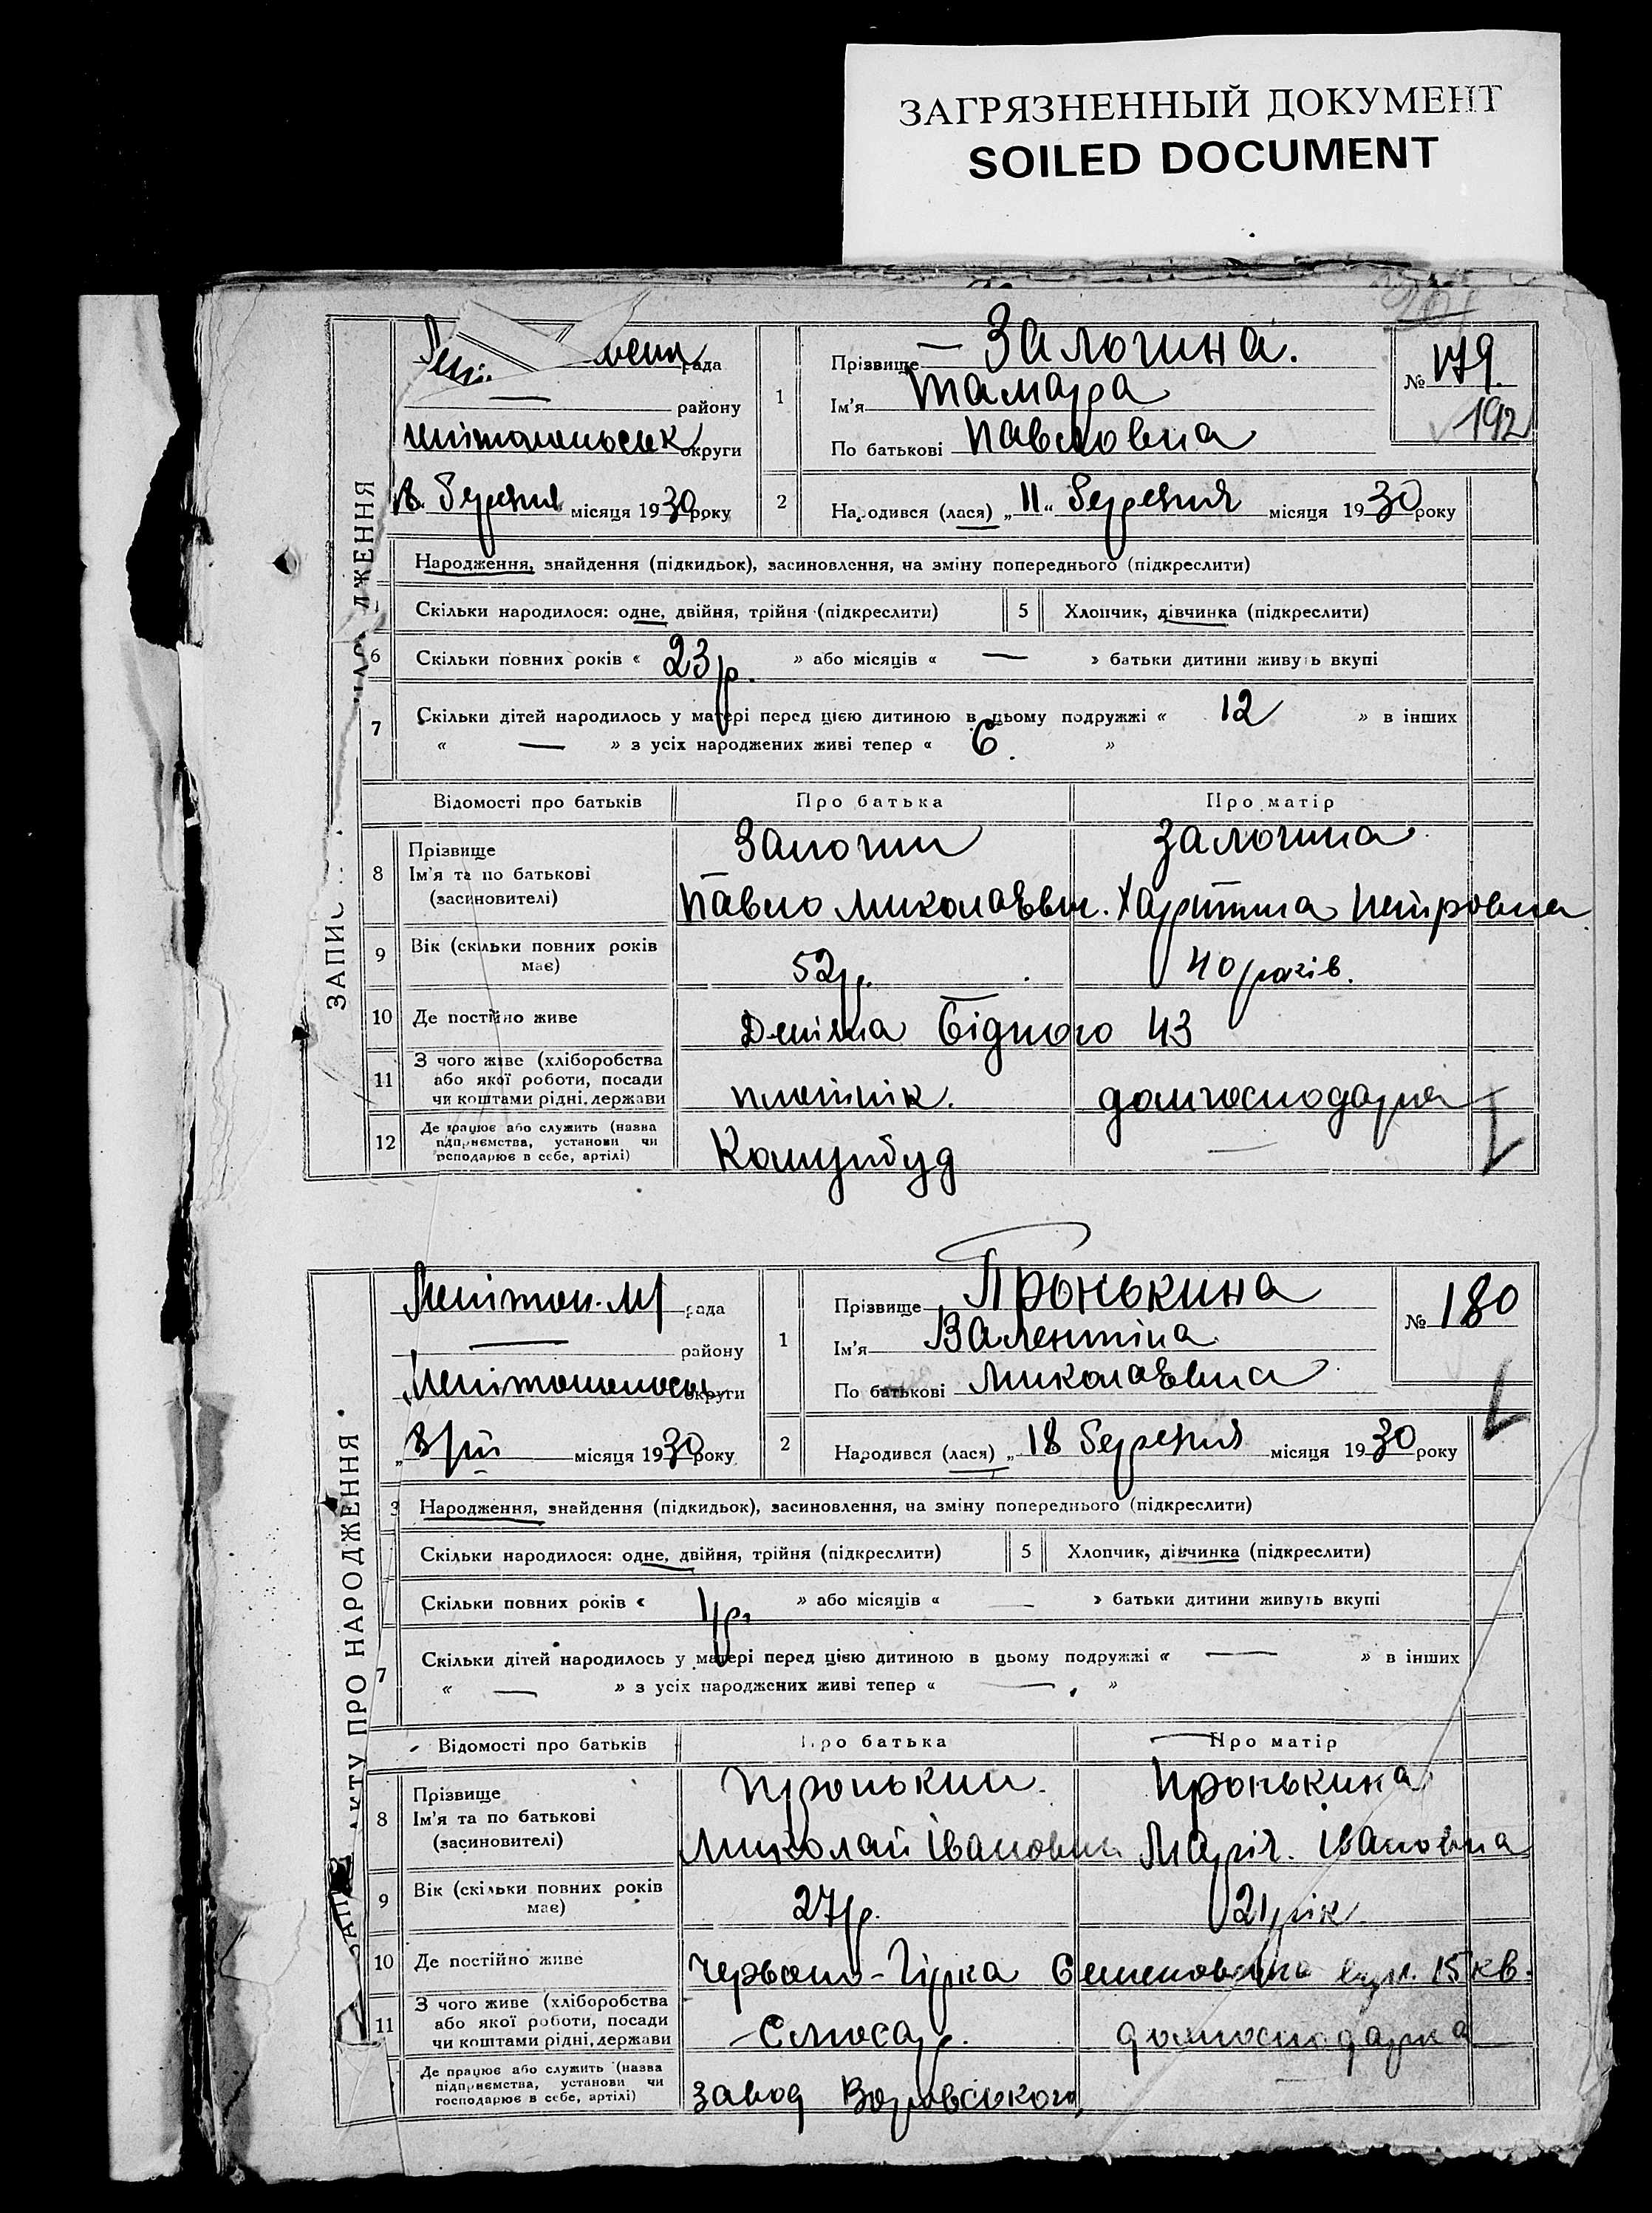 ЗАГРЯЗНЕННЫЙ ДОКУМЕНТ
SOILED DOCUMENT
рада
району
округи
березня місяця 1930 року
1
Прізвище Залогина.
Ім'я Тамара
По батькові Павловна
№ 179.
192
2
Народився (лася) „11" березня місяця 1930 року
Народження, знайдення (підкидьок), засиновлення, на зміну попереднього (підкреслити)
Скільки народилося: одне, двійня, трійня (підкреслити)
5 Хлопчик, дівчинка (підкреслити)
6 Скільки повних років « 23 р. » або місяців « — » батьки дитини живуть вкупі
7 Скільки дітей народилось у матері перед цією дитиною в цьому подружжі « 12 » в інших
« — » з усіх народжених живі тепер « 6. »
Відомості про батьків Про батька Про матір
8 Прізвище
Ім'я та по батькові
(засиновителі)
Залогин
Павло Миколаєвич.
Залогина
Харитина Петровна
9 Вік (скільки повних років
має)
52 р.
40 років.
10 Де постійно живе
Деміяна Бідного 43
11 З чого живе (хліборобства
або якої роботи, посади
чи коштами рідні, держави
плотнік.
домгосподарка
12 Де працює або служить (назва
підприємства, установи чи
господарює в себе, артілі)
Комунбуд
ЗАПИС
рада
району
округи
місяця 1930 року
1
Прізвище Пронькина
Ім'я Валентіна
По батькові Миколаєвна
№ 180
2
Народився (лася) „ 18 березня місяця 1930 року
3 Народження, знайдення (підкидьок), засиновлення, на зміну попереднього (підкреслити)
Скільки народилося: одне, двійня, трійня (підкреслити)
5 Хлопчик, дівчинка (підкреслити)
Скільки повних років « 1 р. » або місяців « — » батьки дитини живуть вкупі
7 Скільки дітей народилось у матері перед цією дитиною в цьому подружжі « — » в інших
« — » з усіх народжених живі тепер « — »
Відомості про батьків Про батька Про матір
8 Прізвище
Ім'я та по батькові
(засиновителі)
Пронькин
Миколай Іванович
Пронькина
Марія. Івановна
9 Вік (скільки повних років
має)
27 р.
21 рік
10 Де постійно живе
Гірка 15 кв.
11 З чого живе (хліборобства
або якої роботи, посади
чи коштами рідні, держави
Слюсар.
домгосподарка
Де працює або служить (назва
підприємства, установи чи
господарює в себе, артілі)
завод Воровського,
АКТУ ПРО НАРОДЖЕННЯ